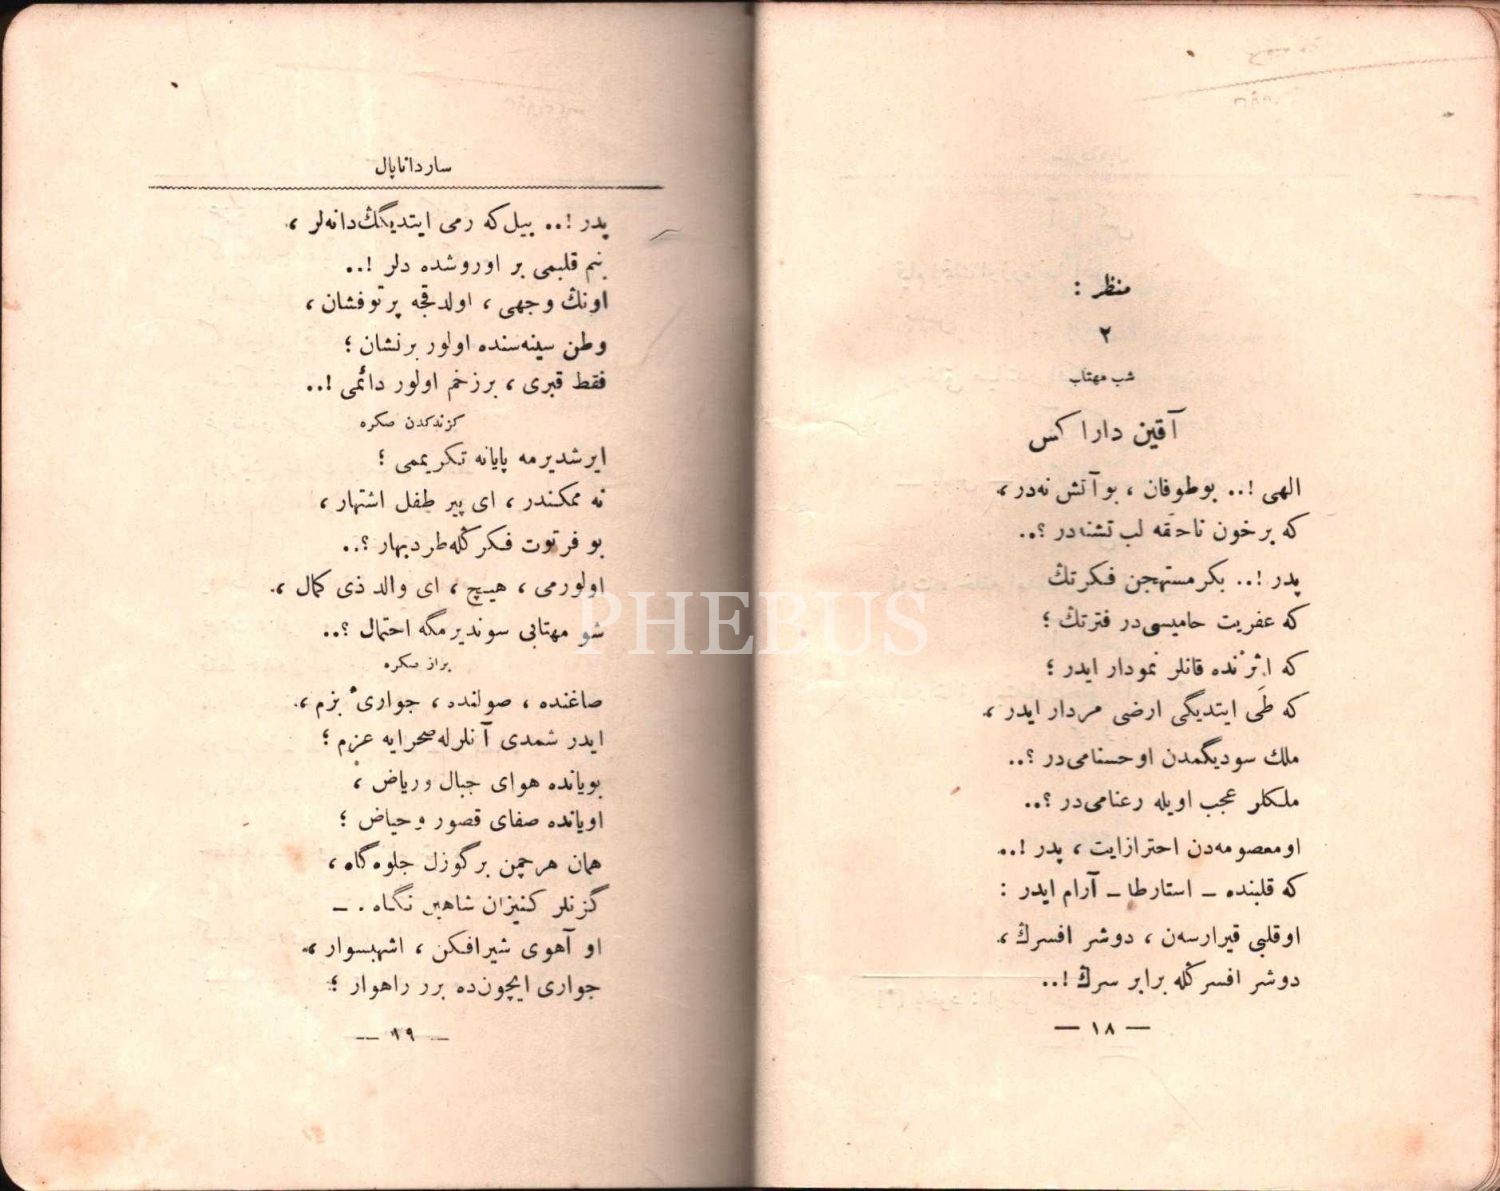 منظر :
٢
شب مهتاب
آقین داراکس
الهی !.. بوطوفان ، بوآتش نه‌در ،
که برخون ناحقه لب تشنه‌در ؟..
پدر !.. بکر مستهجن فکرتڭ
که عفریت حامیسی‌در فترتڭ ؛
که اثرنده قانلر نمودار ایدر ؛
که طی ایتدیگی ارضی مردار ایدر ،
ملك سودیگمدن اوحسنامی‌در ؟..
ملکلر عجب اویله رعنامی‌در ؟..
اومعصومه‌دن احترازایت ، پدر !..
که قلبنده ـ استارطا ـ آرام ایدر :
اوقلبی قیرارسه‌ن ، دوشر افسرڭ ،
دوشر افسرڭله برابر سرڭ !..
— ١٨ —
سارداناپال
پدر !.. بیل که رمی ایتدیگڭ دانه‌لر ،
بنم قلبمی بر اوروشده دلر !..
اونڭ وجهی ، اولدقجه پرتوفشان ،
وطن سینه‌سنده اولور برنشان ؛
فقط قبری ، برزخم اولور دائمی !..
کزندکدن صکره
ایرشدیرمه پایانه تکریممی ؛
نه ممکندر ، ای پیر طفل اشتهار ،
بو فرتوت فکرڭله طردبهار ؟..
اولورمی ، هیچ ، ای والد ذی کمال ،
شو مهتابی سوندیرمگه احتمال ؟..
براز صکره
صاغنده ، صولنده ، جواریٔ بزم ،
ایدر شمدی آنلرله صحرایه عزم ؛
بویانده هوای جبال وریاض ،
اویانده صفای قصور وحیاض ؛
همان هرچمن برگوزل جلوه‌گاه ،
گزنلر کنیزان شاهین نگاه . ـ
او آهوی شیرافکن ، اشهبسوار ،
جواری ایچون‌ده برر راهوار ؛
— ١٩ —
PHEBUS